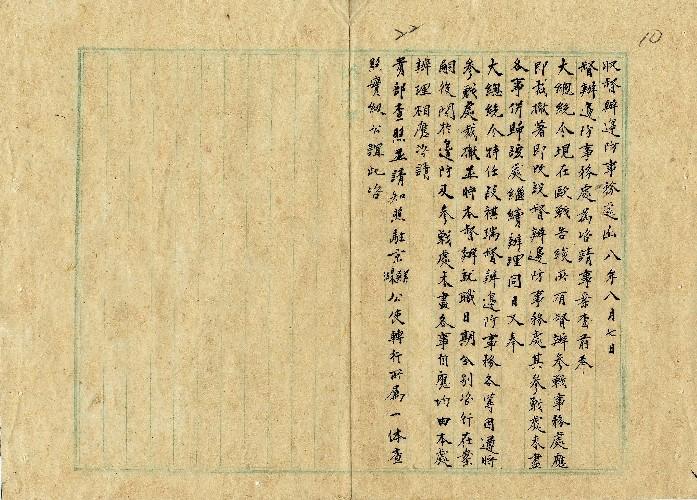 收督辦邊防事務處函 八年八月七日
督辦邊防事務處為咨請事案查前奉
大總統令現在歐戰告終所有督辦參戰事務處應
即裁撤著即改設督辦邊防事務處其參戰處未盡
各事併歸該處繼續辦理同日又奉
大總統令特任段祺瑞督辦邊防事務各等因遵將
參戰處裁撤並將本督辦就職日期分別咨行在案
嗣後關於邊防及參戰處未盡各事自應均由本處
辦理相應咨請
貴部查照並請知照駐京 公使轉行所屬一体查
照實級公誼此咨
22
10